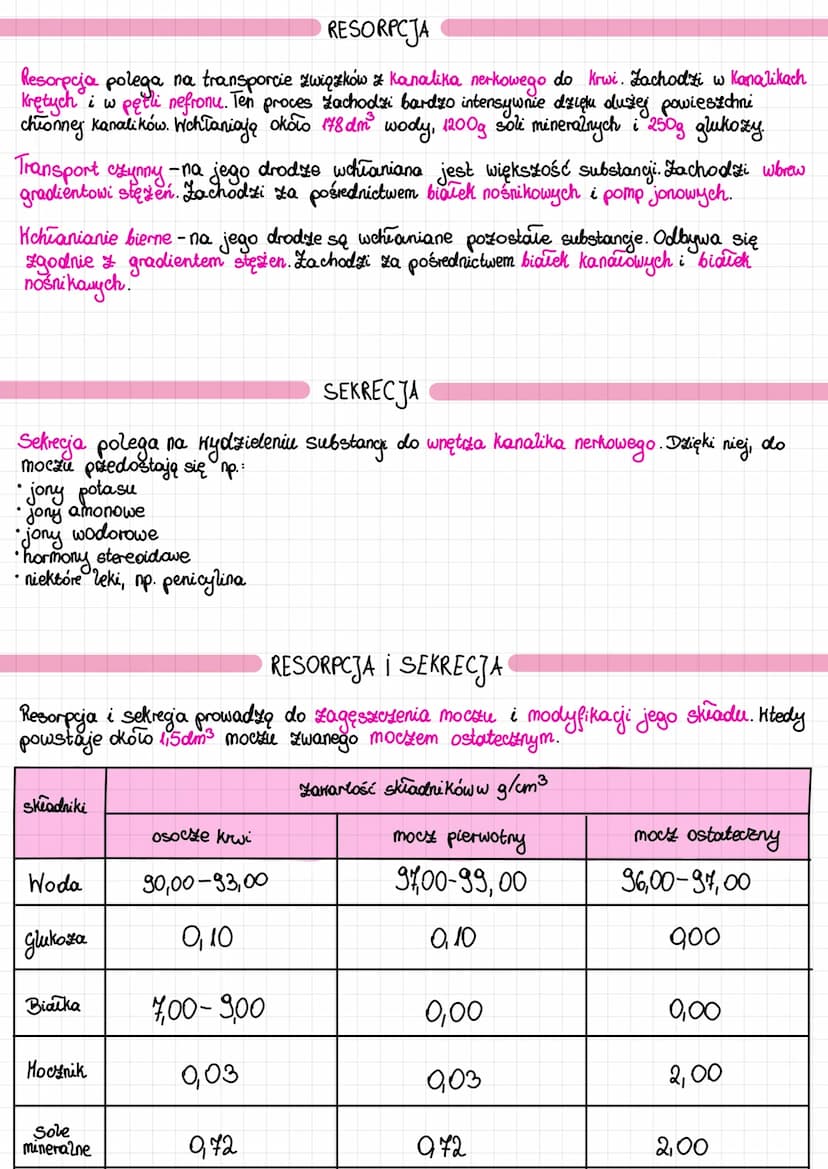 RESORPCJA
Resorpcja polega na transporcie związków z kanalika nerkowego do krwi. Zachodzi w kanalikach
krętych i w pętli nefronu. Ten proces zachodzi bardzo intensywnie dzięki dużej powieszchni
chłonnej kanalików. Wchłaniają około 178 dm³ wody, 1200g soli mineralnych i 250g glukozy.
Transport czynny – na jego drodze wchłaniana jest większość substancji. Zachodzi wbrew
gradientowi stężeń. Zachodzi za pośrednictwem białek nośnikowych i pomp jonowych.
Wchłanianie bierne – na jego drodze są wchłaniane pozostałe substancje. Odbywa się
zgodnie z gradientem stężeń. Zachodzi za pośrednictwem białek kanałowych i białek
nośnikowych.
SEKRECJA
Sekrecja polega na wydzieleniu substancji do wnętrza kanalika nerkowego. Dzięki niej, do
moczu przedostają się np.:
• jony potasu
• jony amonowe
• jony wodorowe
• hormony stereoidowe
• niektóre leki, np. penicylina
RESORPCJA i SEKRECJA
Resorpcja i sekrecja prowadzą do zagęszczenia moczu i modyfikacji jego składu. Wtedy
powstaje około 1,5dm³ moczu zwanego moczem ostatecznym.
składniki
zawartość składników w g/cm³
osocze krwi mocz pierwotny mocz ostateczny
Woda 90,00-93,00 97,00-99,00 96,00-97,00
glukoza 0,10 0,10 0,00
Białka 7,00-9,00 0,00 0,00
Mocznik 0,03 0,03 2,00
Sole
mineralne 0,72 0,72 2,00